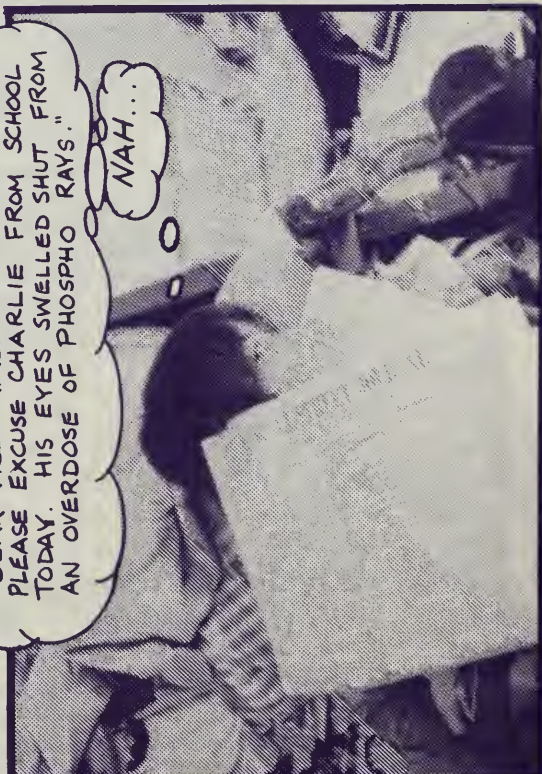 PLEASE EXCUSE CHARLIE FROM SCHOOL
TODAY. HIS EYES SWELLED SHUT FROM
AN OVERDOSE OF PHOSPHO RAYS."
NAH...